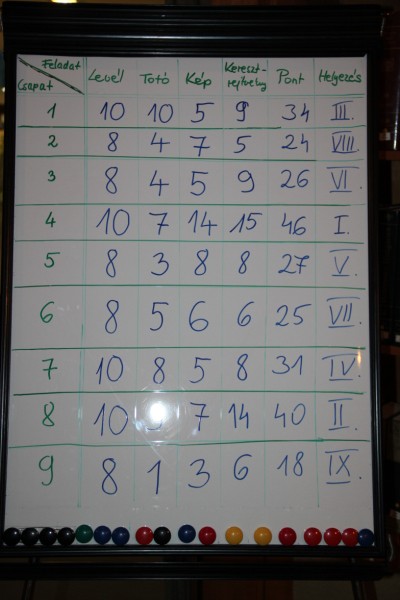 Feladat
Csapat Levél Totó Kép Kereszt-rejtvény Pont Helyezés
1 10 10 5 9 34 III.
2 8 4 7 5 24 VIII.
3 8 4 5 9 26 VI.
4 10 7 14 15 46 I.
5 8 3 8 8 27 V.
6 8 5 6 6 25 VII.
7 10 8 5 8 31 IV.
8 10 7 14 40 II.
9 8 1 3 6 18 IX.